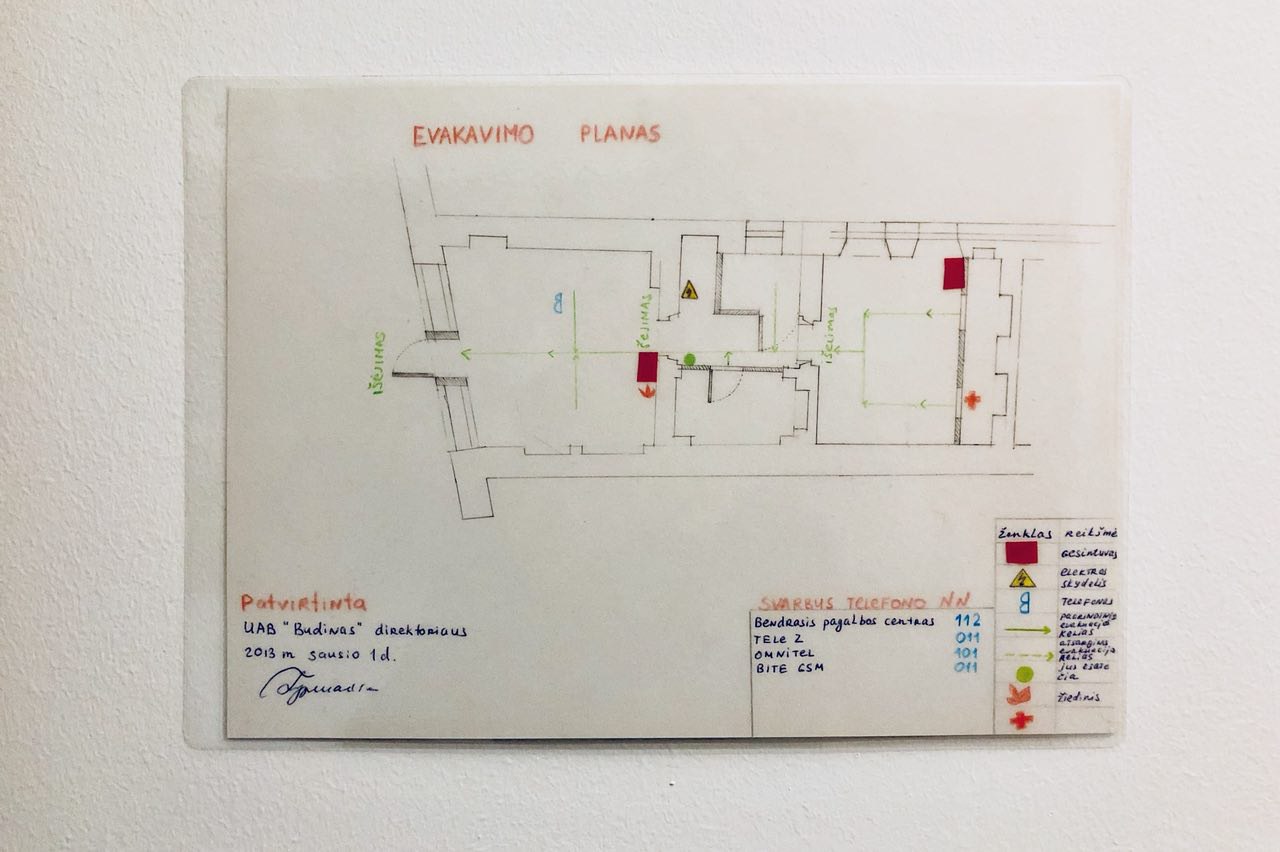 EVAKAVIMO PLANAS
IŠĖJIMAS
IŠĖJIMAS
IŠĖJIMAS
Patvirtinta
UAB "Budinas" direktoriaus
2013 m sausio 1 d.
SVARBUS TELEFONO NN
Bendrasis pagalbos centras 112
TELE 2 011
OMNITEL 101
BITE GSM 011
Ženklas Reikšmė
Gesintuvas
Elektros
skydelis
TELEFONAS
evakuacijo
kelias
atsarginis
evakuacijo
kelias
jus esate
čia
židinis